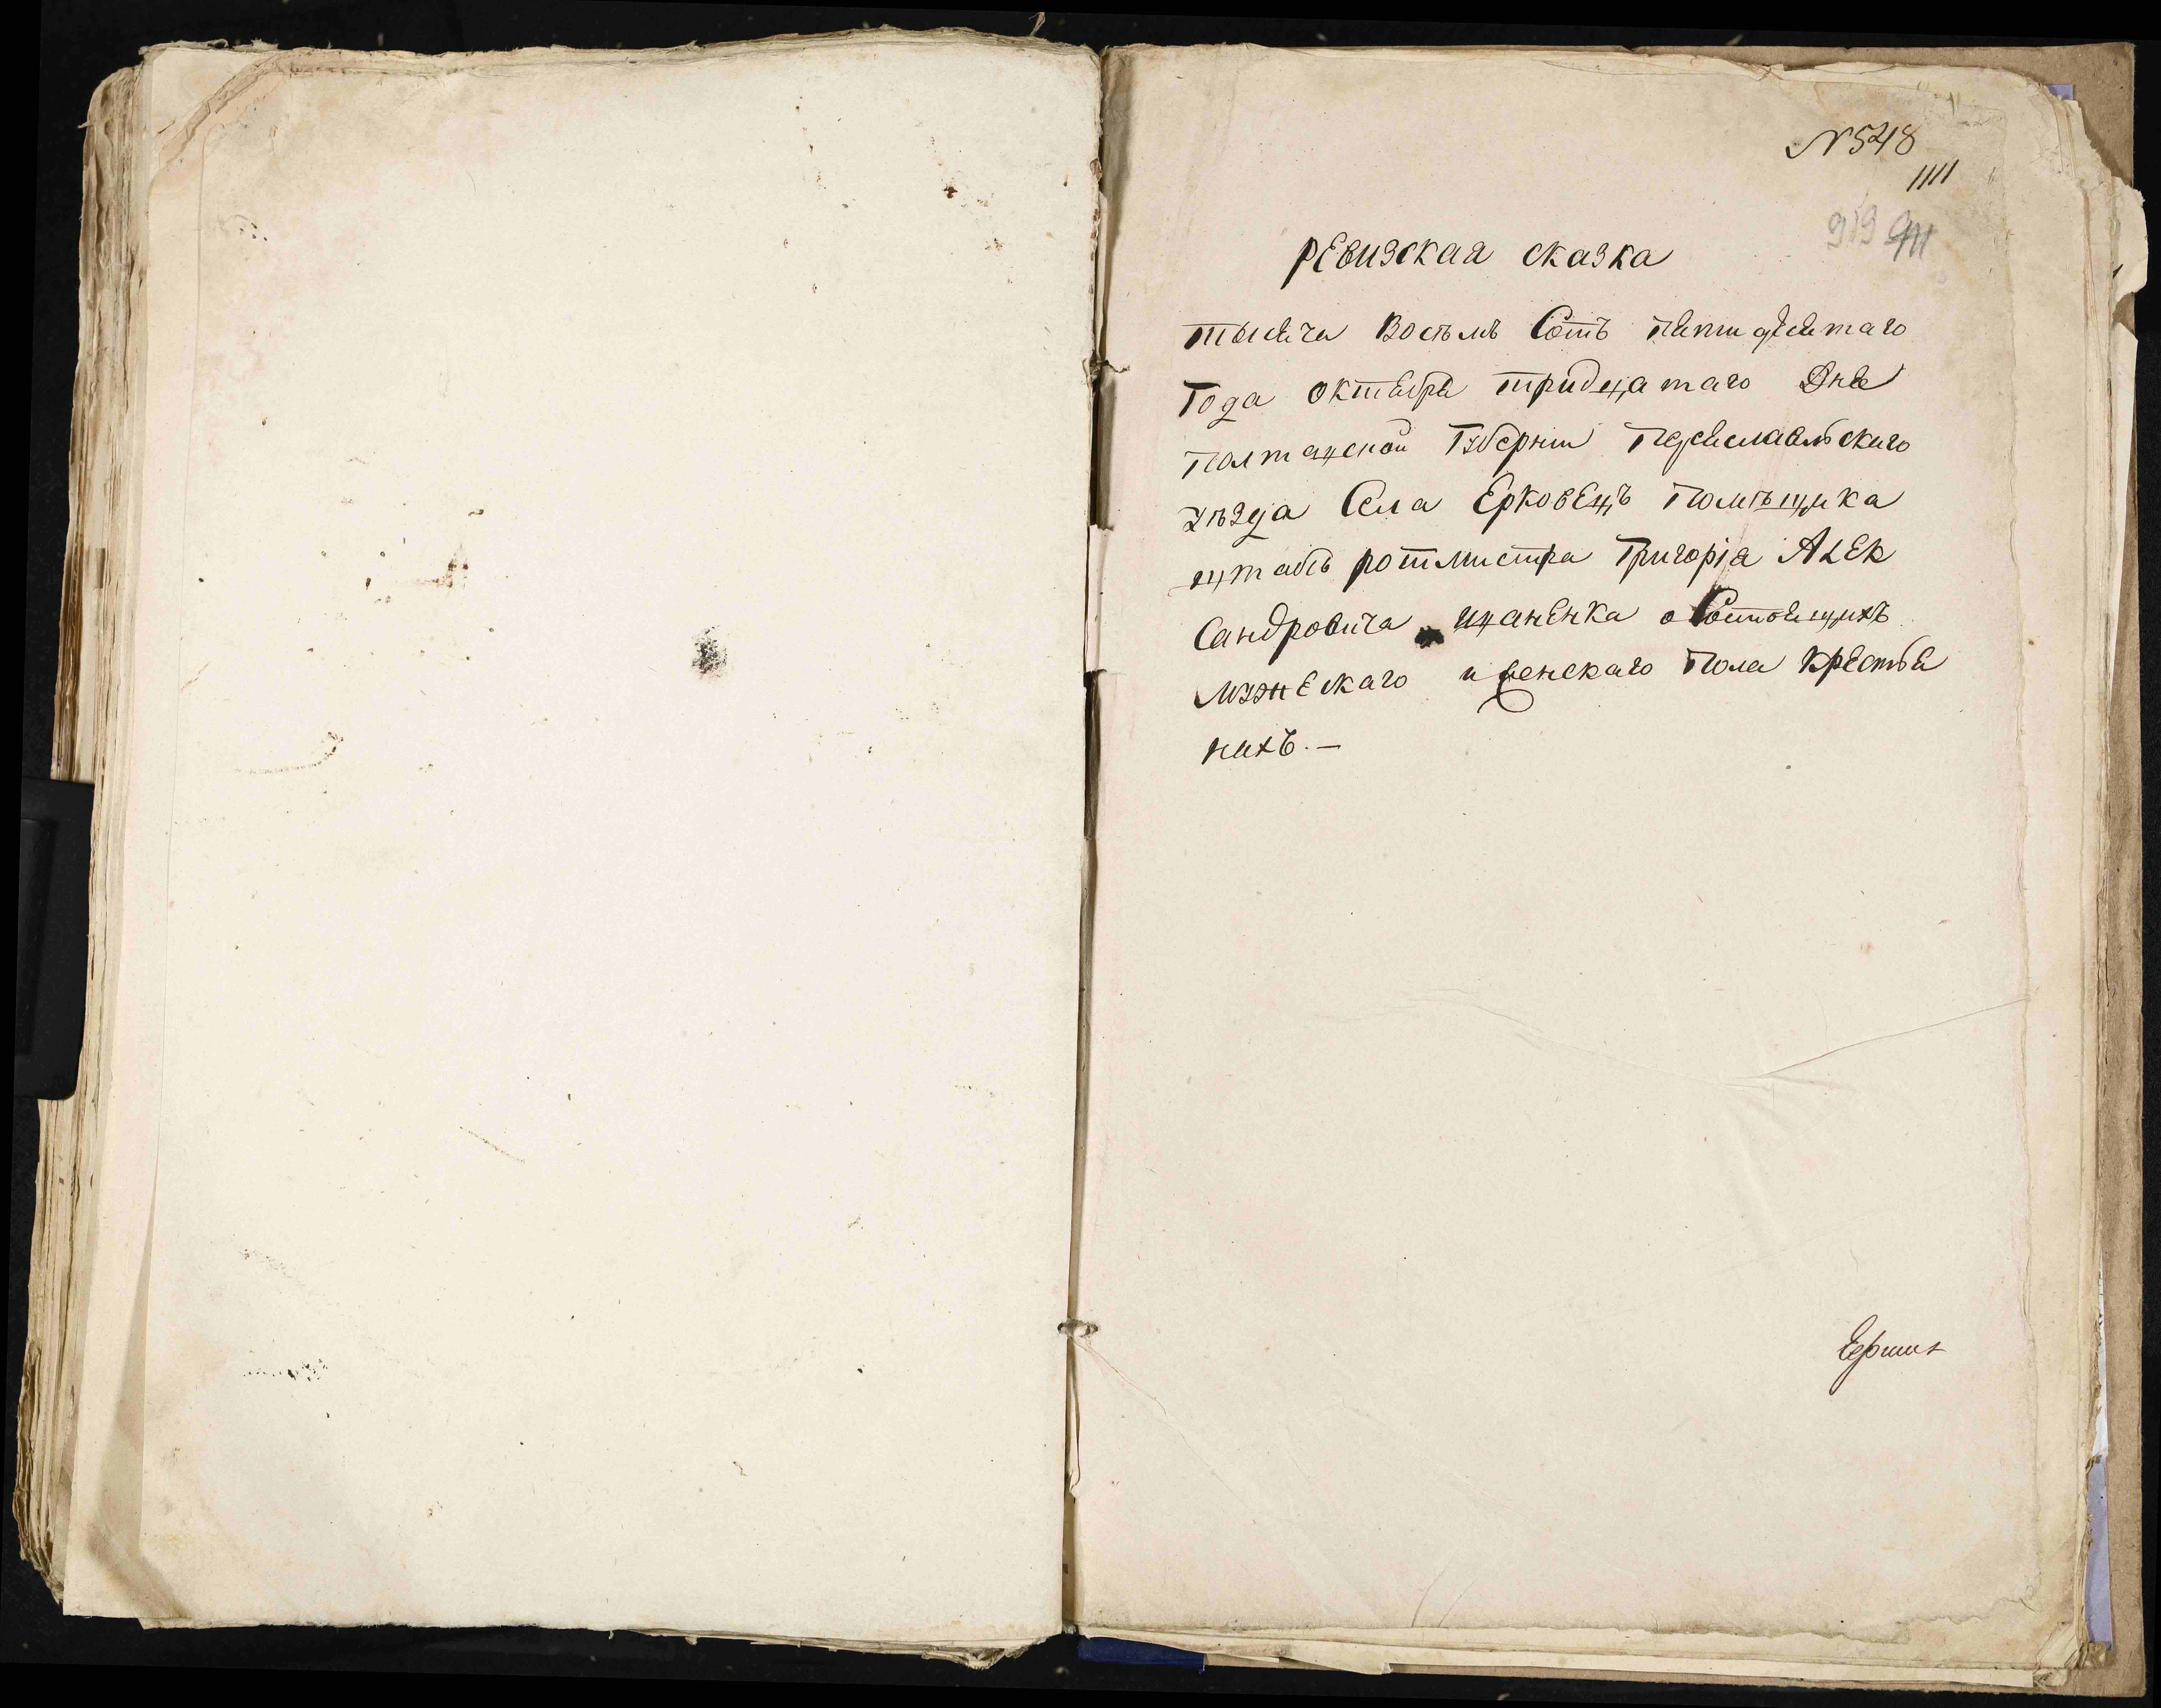 N 548
1111
919 911
РЕВИЗСКАЯ СКАЗКА
тысяча Восемь Сотъ пятидесятаго
Года октября тридцатаго Дня
Полтавской Губернии Переяславльскаго
уѣзда Села Ерковецъ Помѣщика
штабъ ротмистра Григорія Алек
Сандровича Иваненка о Состоящихъ
мужескаго и женскаго Пола крестья
нахъ. —